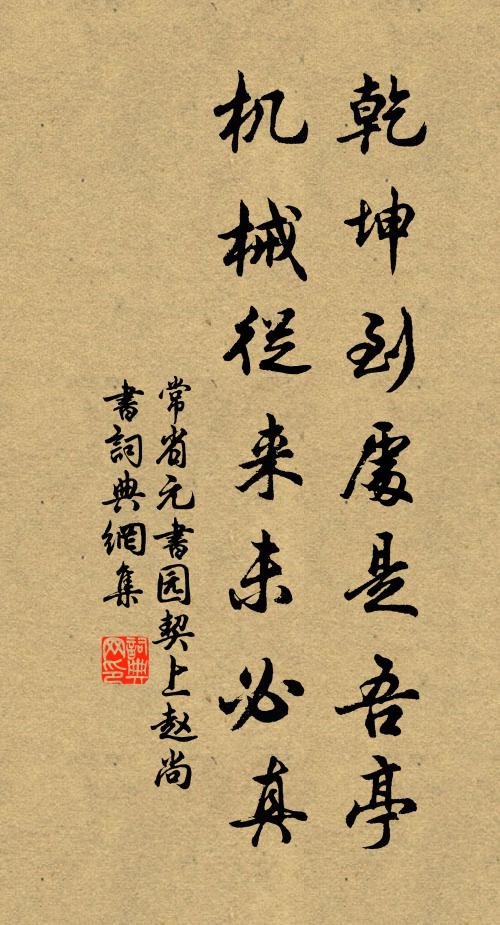 乾坤到處是吾亭
机械從来未必真
常省元书园契上赵尚
書詞典網集
詞典网印